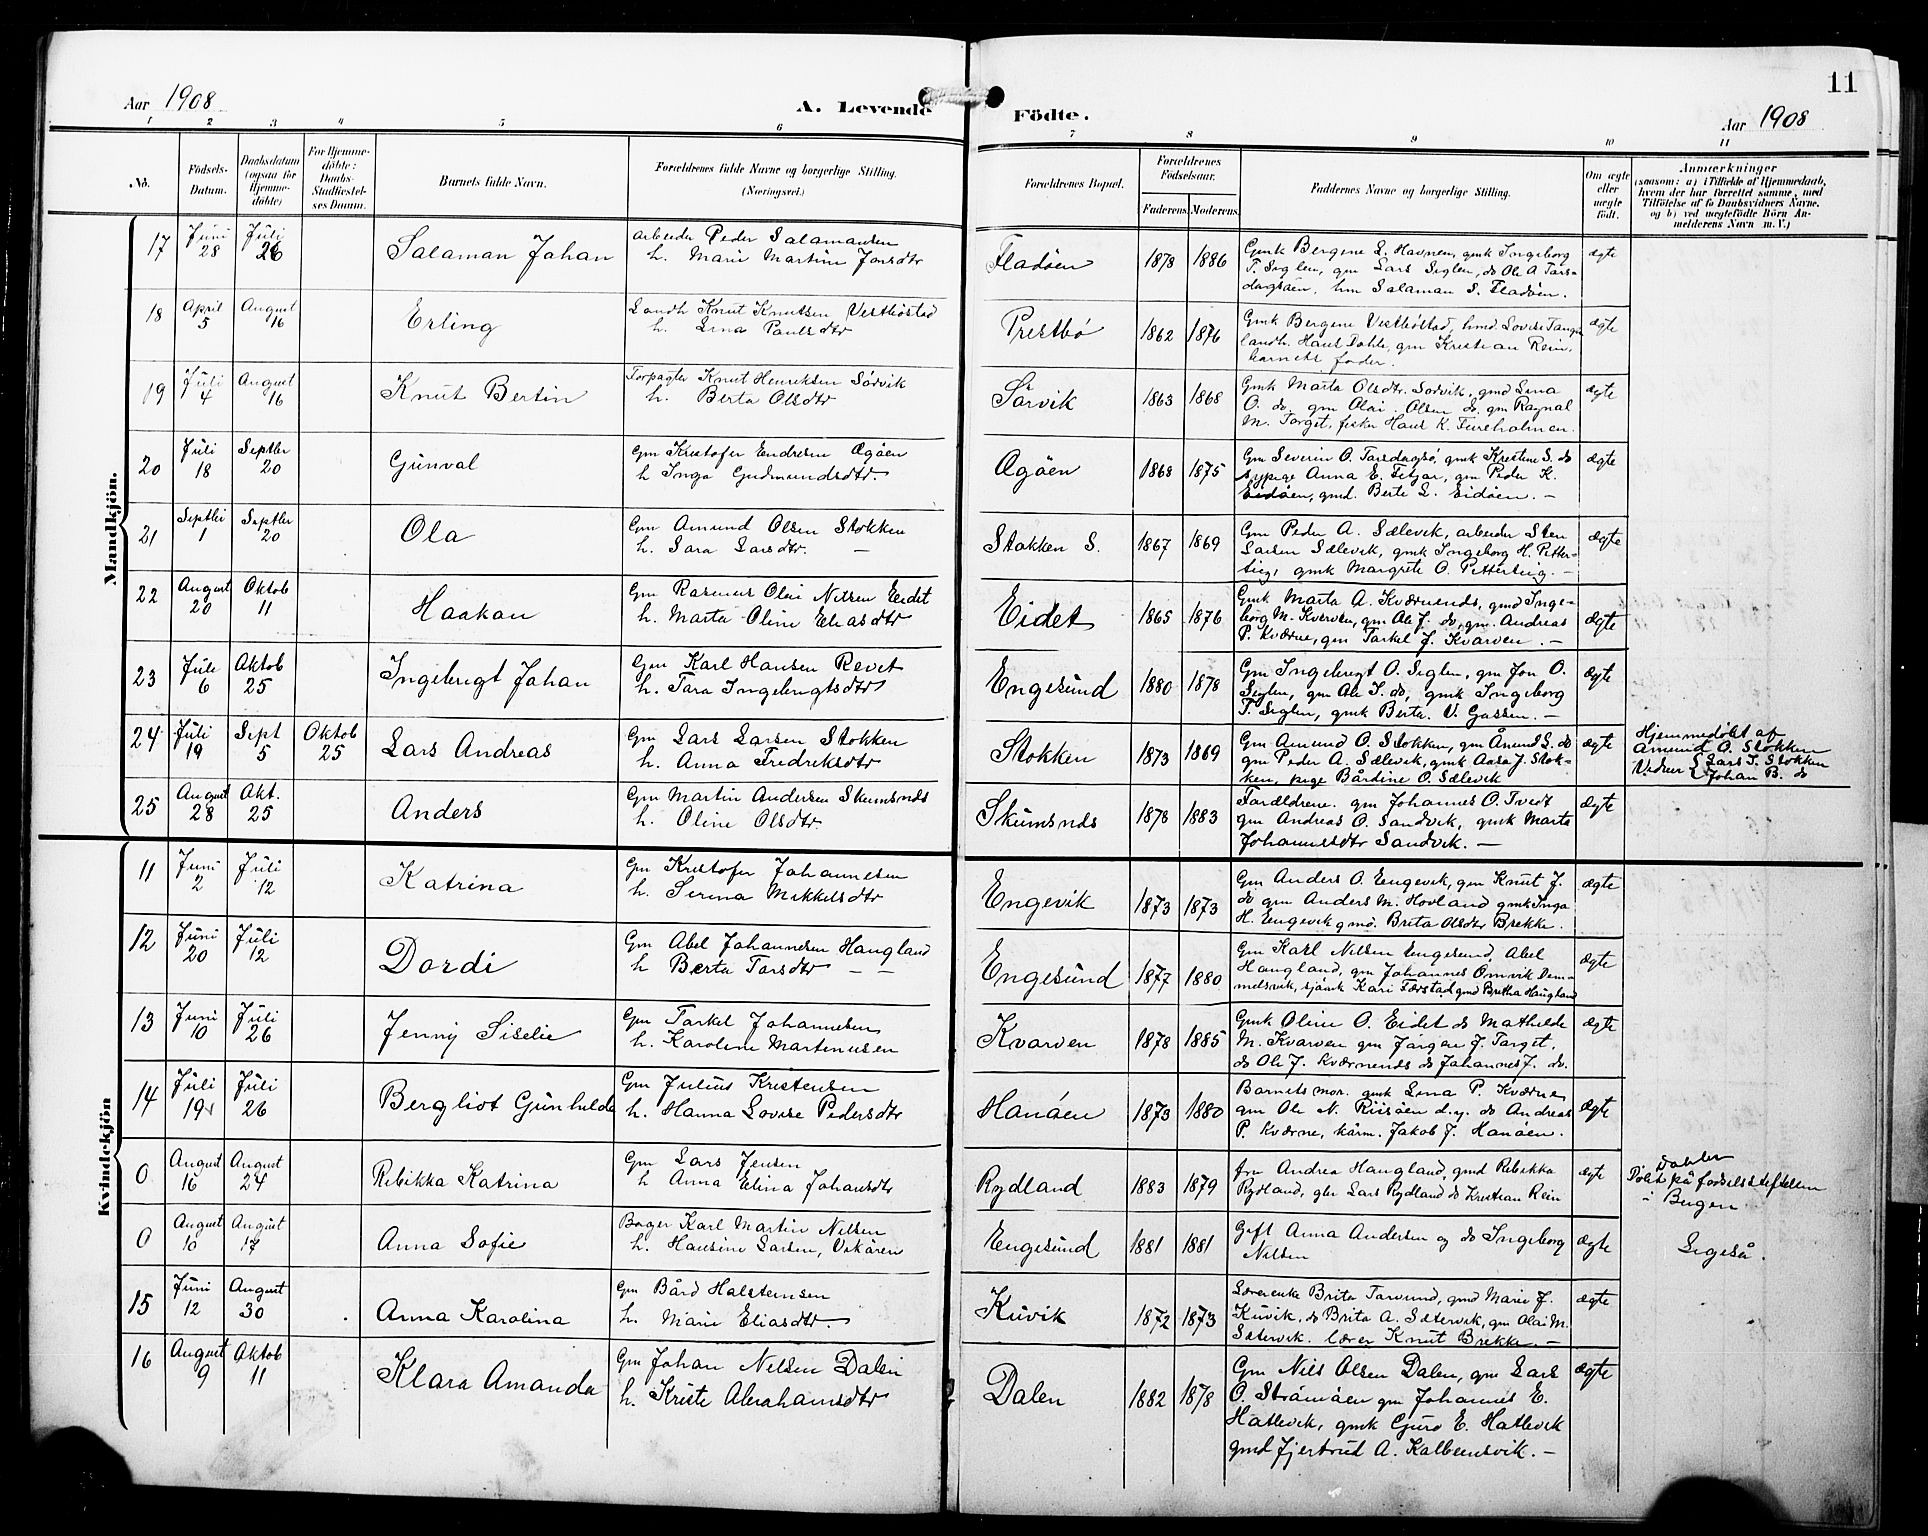 Aar 1908
A. Levende
Födte.
11
Aar 1908
1 2 3 4 5 6 7 8 9 10 11
No.
Födsels-
Datum.
Daabsdatum
(ogsaa for
Hjemme-
döbte)
For Hjemme-
döbte:
Daabs-
Stadfæstel-
ses Datum.
Barnets fulde Navn.
Forældrenes fulde Navne og borgerlige Stilling.
(Næringsvei.)
Forældrenes Bopæl.
Forældrenes
Födselsaar.
Faderens.
Moderens.
Faddernes Navne og borgerlige Stilling.
Om ægte
eller
uægte
födt.
Anmærkninger
(saasom: a) i Tilfælde af Hjemmedaab,
hvem der har forrettet samme, med
Tilföielse af to Daabsvidners Navne,
og b) ved uægtefödte Börn An-
melderens Navn m. V.)
Mandkjön.
17
Juni
28
Juli
26
Salaman Johan
arbeider Peder Salamansen
h. Marie Martine Jonsdtr
Fladöen
1878
1886
Gmk Bergene L. Havnen, gmk Ingeborg
T. Siglen, gm Lars Siglen, do Ole A Tors-
dagsöen, hm Salaman S. Fladöen.
ægte
18
April
5
August
16
Erling
Landh Knut Knutsen Vestböstad
h. Lina Paulsdtr
Prestbö
1862
1876
Gmk Bergene Vestböstad, hmd. Lovise Tangen
landh. Hans Dahle, gm Kristian Rein,
barnets fader.
ægte
19
Juli
4
August
16
Knut Bertin
Forpagter Knut Henriksen Sörvik
h. Berta Olsdtr
Sörvik
1863
1868
Gmk Marta Olsdtr. Sörvik, gmd Lina
O. do, gm Olai Olsen do, gm Ragnal
M. Torget, fisker Hans K. Fureholmen.
ægte
20
Juli
18
Septbr
20
Gunval
Gm Kristofer Endresen Øgöen
h Inga Gudmundsdtr.
Øgöen
1868
1875
Gm Severin O. Torsdagsö, gmk Kristine S. do
sypige Anna E. Fitjar, gm Peder K.
Eidöen, gmd. Berte L. Eidöen. –
ægte
21
Septbr
1
Septbr
20
Ola
Gm Amund Olsen Stokken
h. Sara Larsdtr. –
Stokken S.
1867
1869
Gm Peder A. Sælevik, arbeider Sten
Larsen Sælevik, gmk Ingeborg H. Petter-
teig, gmk Margrete O. Petterteig. –
ægte
22
August
20
Oktob
11
Haakon
Gm Rasmus Olai Nilsen Eidet
h. Marta Oline Eliasdtr
Eidet
1865
1876
Gmk Marta A. Kværnends, gmd Inge-
borg M. Kverven, gm Ole J. do, gm. Andreas
P. Kværne, gm Torkel J. Kvarven. –
ægte
23
Juli
6
Oktob
25
Ingebrigt Johan
Gm Karl Hansen Revet
h. Tora Ingebrigtsdtr
Engesund
1880
1878
Gm Ingebrigt O. Siglen, gm Jon O.
Siglen, gm Ole I. do, gmk Ingeborg
T. Siglen, gmk Berta V. Gassen. –
ægte
24
Juli
19
Sept
5
Oktob
25
Lars Andreas
Gm Lars Larsen Stokken
h. Anna Fredriksdtr
Stokken
1873
1869
Gm Amund O. Stokken, gm Ånund L. do
gm Peder A. Sælevik, gmk Aasa J. Stok-
ken, pige Bårdine O. Sælevik
ægte
Hjemmedöbt af
Amund O. Stokken
Vidner Lars I. Stokken
Johan B. do
25
August
28
Okt.
25
Anders
Gm Martin Andersen Skumsnds
h. Oline Olsdtr.
Skumsnds
1878
1883
Forældrene. gm Johannes O. Tvedt
gm Andreas O. Sandvik, gmk Marta
Johannesdtr Sandvik. –
ægte
Kvindekjön
11
Juni
2
Juli
12
Katrina
Gm Kristofer Johannesen
h. Serina Mikkelsdtr
Engevik
1873
1873
Gm Anders O. Engevik, gm Knut J.
do gm Anders M. Hovland gmk Inga
H. Engevik gmd. Brita Olsdtr Brekke.
ægte
12
Juni
20
Juli
12
Dordi
Gm Abel Johannesen Haugland
h Berta Torsdtr – –
Engesund
1877
1880
Gm Karl Nilsen Engesund, Abel
Haugland, gm Johannes Omvik Dem-
melsvik, sjömk Kari Færstad gmd Bretha Haugland
ægte
13
Juni
10
Juli
26
Jenny Siselie
Gm Torkel Johannesen
h. Karoline Martinusen
Kvarven
1878
1885
Gmk Oline O. Eidet do Mathilde
M. Kvarven gm Jörgen J. Torget,
do Ole J. Kværnends do Johannes J. do.
ægte
14
Juli
19
Juli
26
Bergliot Gunhilde
Gm Julius Kristensen
h. Hanna Lovise Pedersdtr
Hanöen
1873
1880
Barnets mor. gmk Lina P. Kværne
gm Ole N. Risöen d.y. do Andreas
P. Kværne, kårm. Jakob J. Hanöen.
ægte
0
August
16
August
24
Rebikka Katrina
Gm Lars Jensen
h Anna Elina Johansdtr
Rydland
1883
1879
fru Andrea Haugland, gmd Rebikka
Rydland, gbr Lars Rydland do Kristian Rein
ægte
Dahler
Döbt på födselsstiftelsen
i Bergen
0
August
10
August
17
Anna Sofie
Bager Karl Martin Nilsen
h. Hansine Larsen, Vikören
Engesund
1881
1881
Gift Anna Andersen og do Ingeborg
Nilsen
ægte
Ligeså.
15
Juni
12
August
30
Anna Karolina
Gm Bård Halsteinsen
h. Marie Eliasdtr.
Kuvik
1872
1873
Lærerenke Brita Torsund, gmd Marie J.
Kuvik, do Brita A. Sætervik, gm Olai M.
Sætervik. lærer Knut Brekke. –
ægte
16
August
9
Oktob
11
Klara Amanda
Gm Johan Nilsen Dalen
h. Kriste Abrahamsdtr
Dalen
1882
1878
Gm Nils Olsen Dalen, gm Lars
O. Strömöen gm Johannes E.
Hatlevik, gmk Guro E. Hatlevik
gmd Gjertrud A. Kalbeinsvik. –
ægte